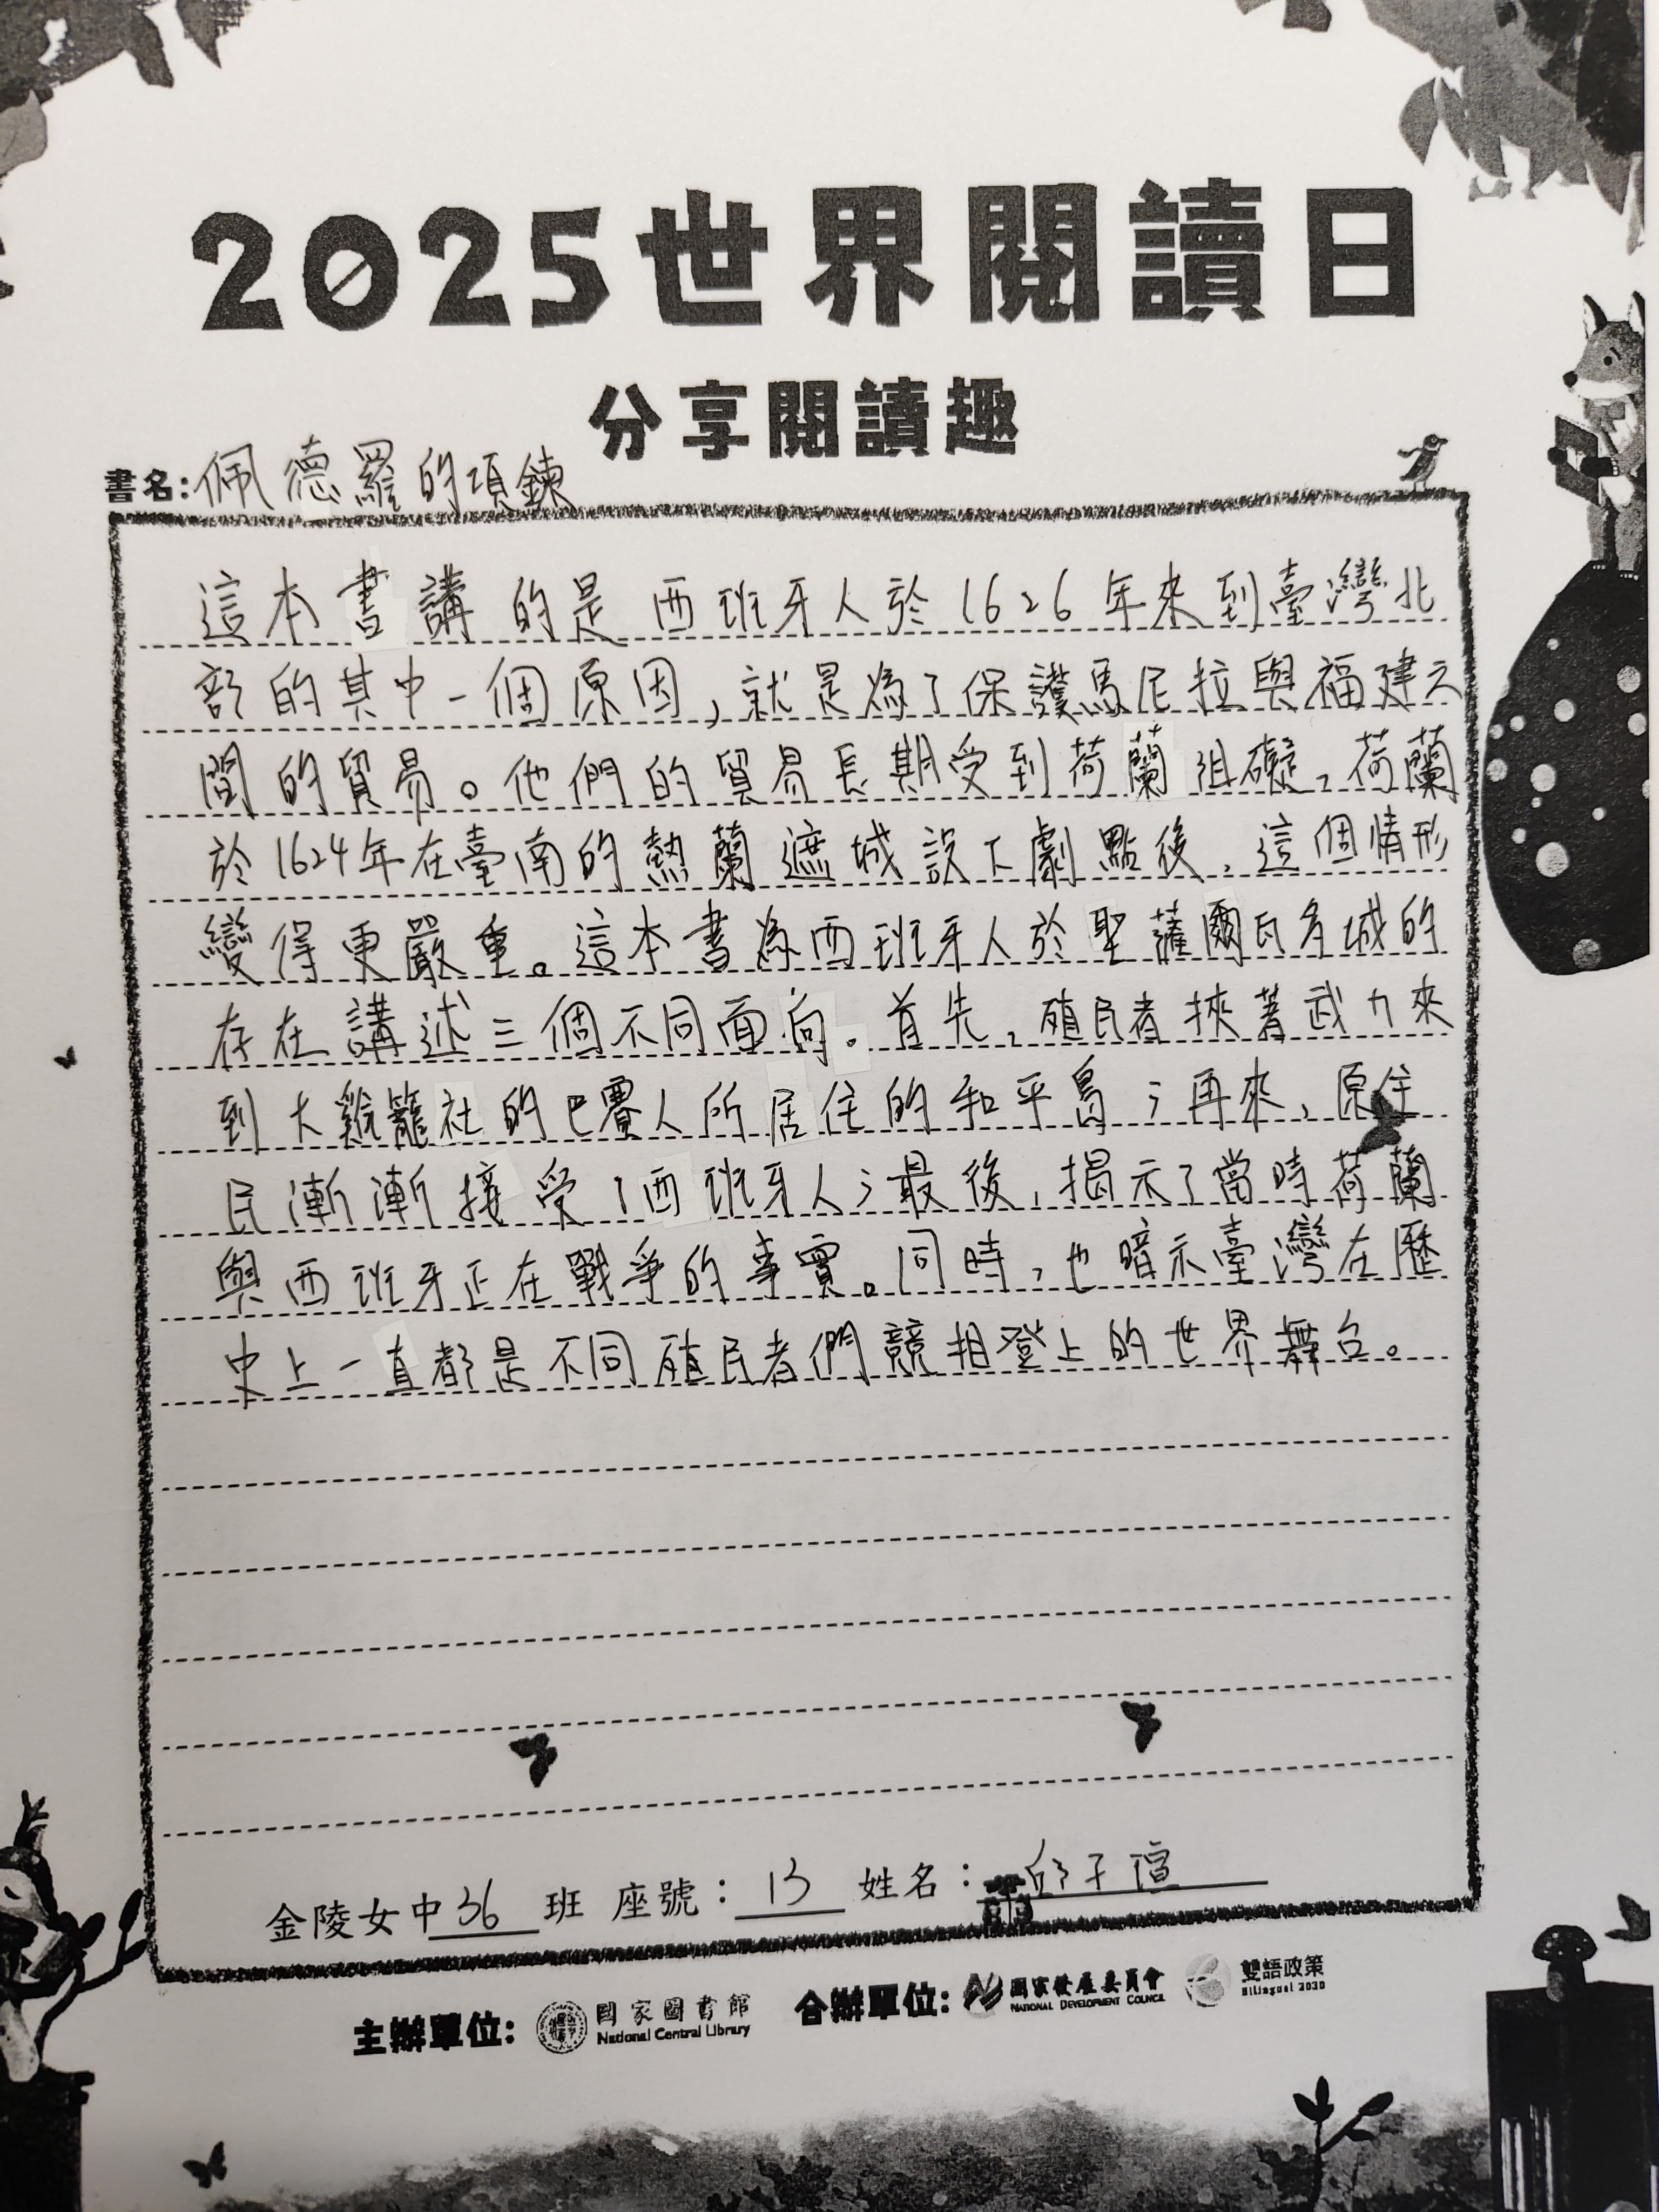 2025世界閱讀日
分享閱讀趣
書名:佩德羅的項鍊
這本書講的是西班牙人於1626年來到臺灣北
部的其中一個原因,就是為了保護馬尼拉與福建之
間的貿易。他們的貿易長期受到荷蘭阻礙,荷蘭
於1624年在臺南的熱蘭遮城設下劇點後,這個情形
變得更嚴重。這本書為西班牙人於聖薩爾瓦多城的
存在講述三個不同面向。首先,殖民者挾著武力來
到大雞籠社的巴賽人所居住的和平島;再來,原住
民漸漸接受了西班牙人;最後,揭示了當時荷蘭
與西班牙正在戰爭的事實。同時,也暗示臺灣在歷
史上一直都是不同殖民者們競相登上的世界舞台。
金陵女中36班 座號:13 姓名:邱子瑄
主辦單位: 國家圖書館 National Central Library 合辦單位: 國家發展委員會 NATIONAL DEVELOPMENT COUNCIL 雙語政策 Bilingual 2030